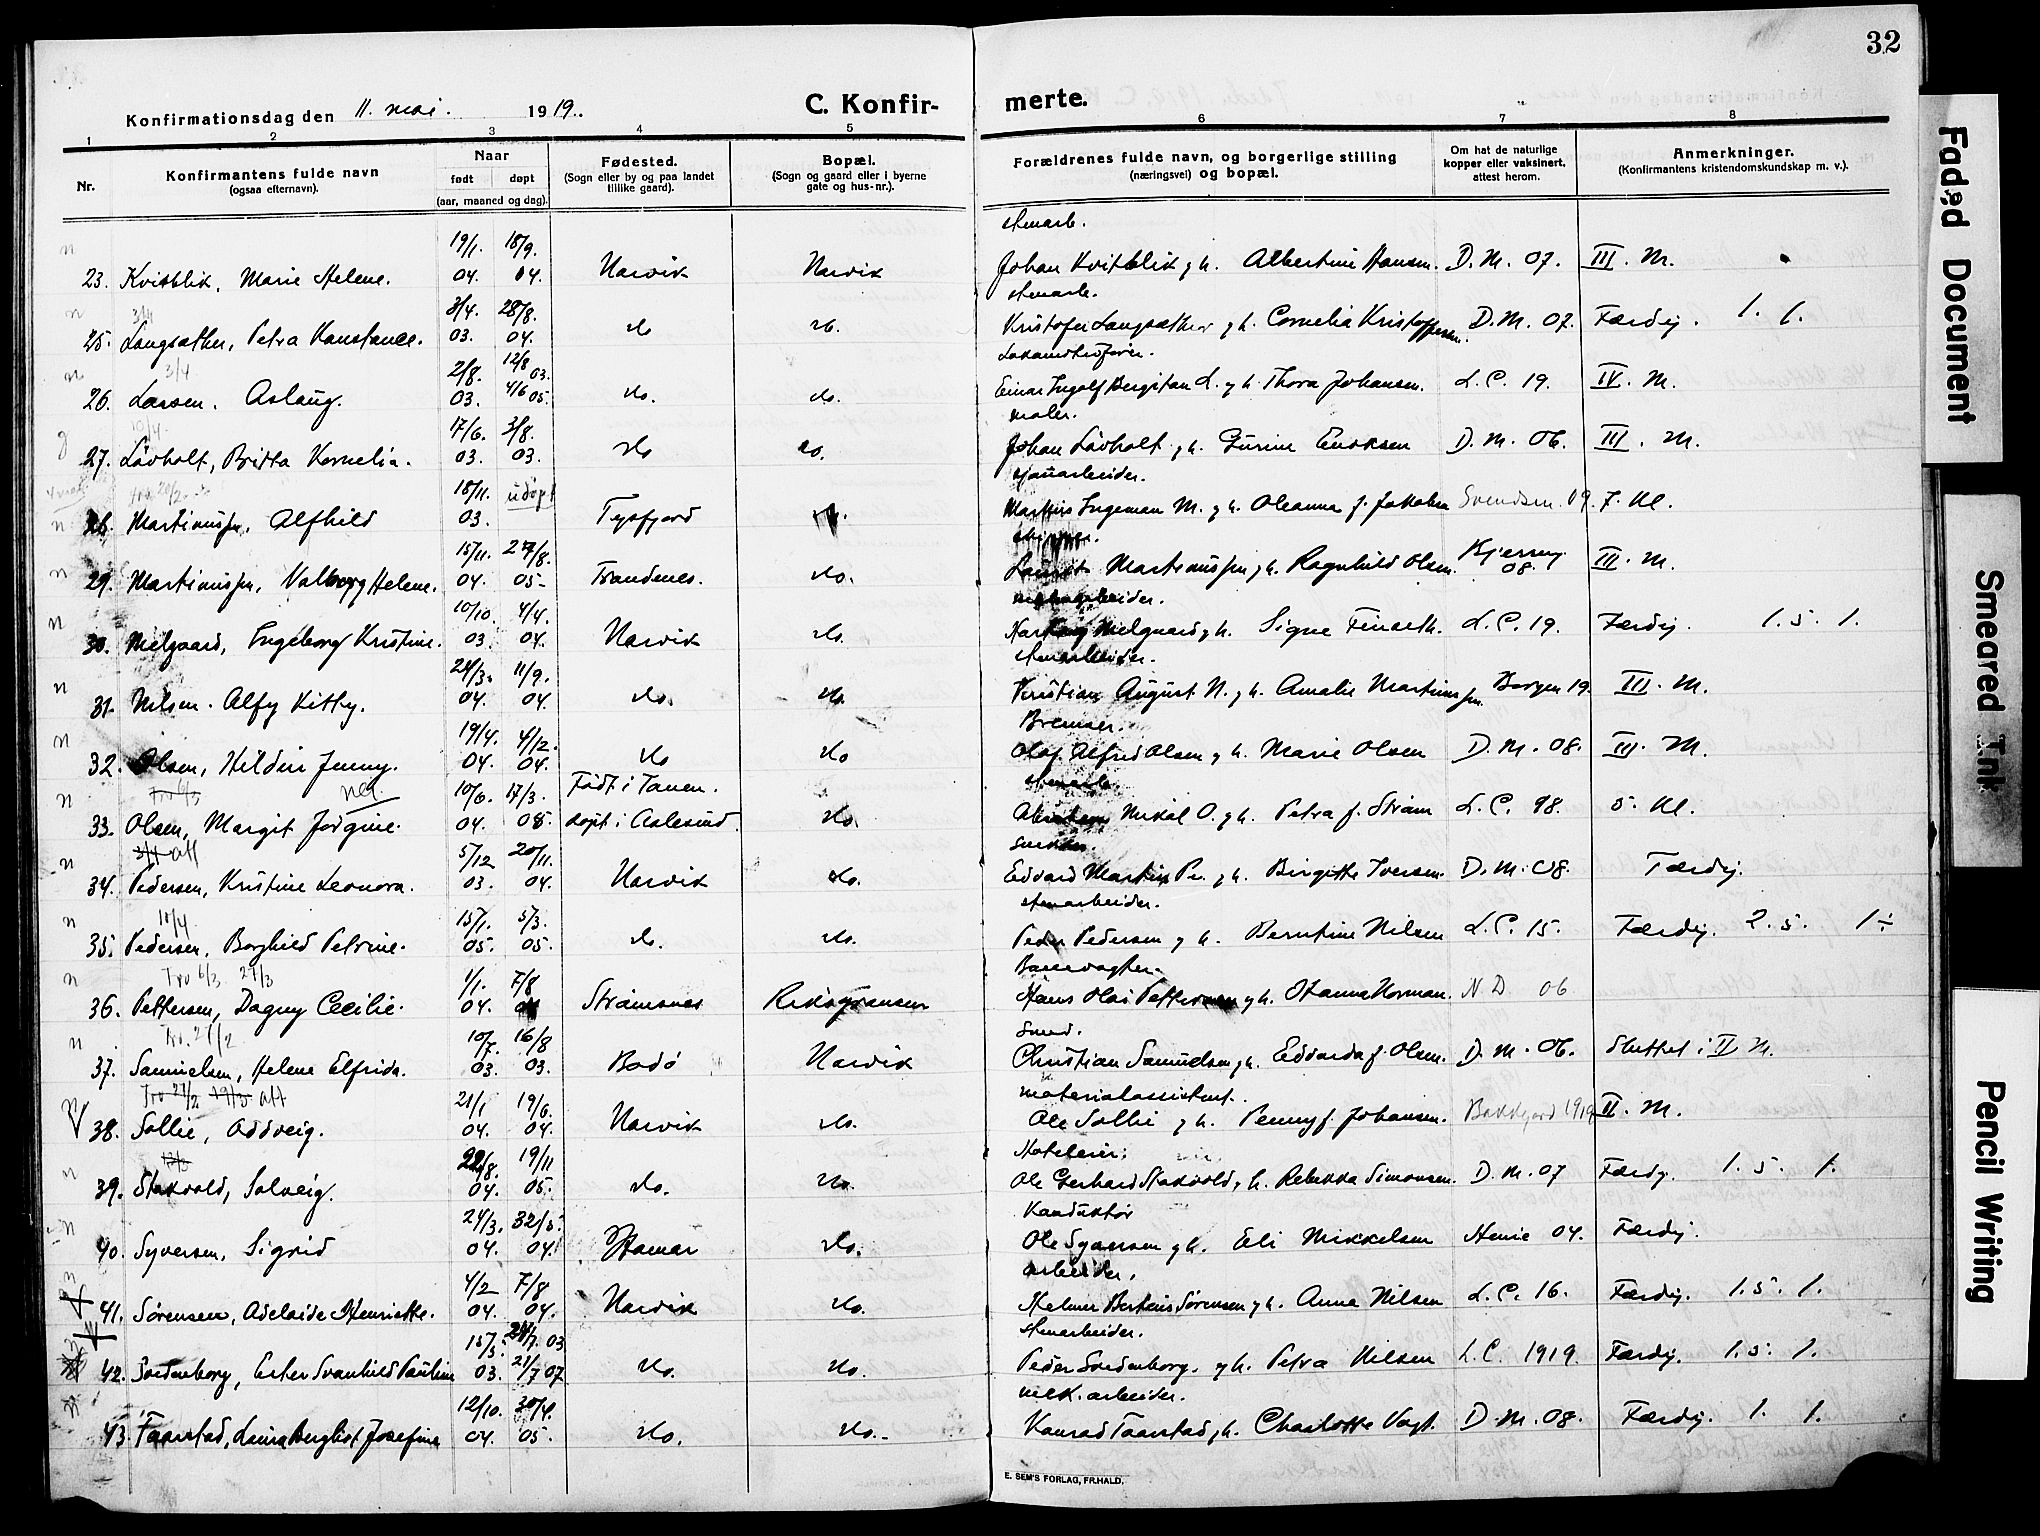 32
Konfirmationsdag den 11. mai. 1919.
C. Konfir-
merte.
1 2 3 4 5 6 7 8
Nr.
Konfirmantens fulde navn
(ogsaa efternavn).
Naar
født døpt
(aar, maaned og dag).
Fødested.
(Sogn eller by og paa landet
tillike gaard).
Bopæl.
(Sogn og gaard eller i byerne
gate og hus-nr.).
Forældrenes fulde navn, og borgerlige stilling
(næringsvei) og bopæl.
Om hat de naturlige
kopper eller vaksinert,
attest herom.
Anmerkninger.
(Konfirmantens kristendomskundskap m. v.).
19/1. 18/9. stenarb.
23. Kvitblik, Marie Helene. 04. 04. Narvik Narvik Johan Kvitblik g h. Albertine Hansen. D.M. 07. III. M.
3/4. 28/8. stenarb.
25. Langsæther, Petra Konstance. 03. 04. do do. Kristofer Langsæther g h. Cornelia Kristoffersen. D.M. 07. Færdig. 1. 1.
3/4 2/8. 12/8 03. Lokomotivfører.
26. Larsen. Aslaug. 03. 4/6 05. do. do. Einar Ingolf Bergitan L. g h. Thora Johansen. L.C. 19. IV. M.
10/4. 17/6. 3/8. maler.
27. Løvholt, Britta Kornelia. 03. 03. do do. Johan Løvholt g h. Gurine Enoksen D.M. 06. III. M.
18/11. udøpt
28. Martinussen, Alfhild 03. Tysfjord do. Ingeman M. g h. Oleanna f. Jakobsen Svendsen 19. 7. Kl.
15/11. 27/8.
29. Martinussen, Valborg Helene. 04. 05. Trandenes. do. Laurits Martinussen g h. Ragnhild Olsen. Kjerring 08. III. M.
10/10. 4/4.
30. Melgaard, Ingeborg Kristine. 03. 04. Narvik do. Hartvig Melgaard g h. Signe Finseth. L.C. 19. Færdig. 1. 5. 1.
24/3. 11/9. stenarbeider.
31. Nilsen. Alfy Kitty. 04. 04. do. do. Kristian August N. g h. Amalie Martinussen. Borgen 19. III. M.
19/4. 4/12. Bremser.
32. Olsen, Hildur Jenny. 04. 04. do do Olaf Alfred Olsen g h. Marie Olsen D.M. 08. III. M.
10/6. 17/3. Født i Tanen. stenarb.
33. Olsen, Margit Jørgine. 04. 05. døpt i Aalesund. do. Abraham Mikal O. g h. Petra f. Strøm L.C. 98. 5. Kl.
3/4 aft 5/12 20/11. Snekker.
34. Pedersen, Kristine Leonora. 03. 04. Narvik do. Edvard Martin Pe. g h. Birgitte Iversen. D.M. 08. Færdig.
10/4 15/1. 5/3. stenarbeider.
35. Pedersen, Borghild Petrine. 05. 05. do. do. Peder Pedersen g h. Berntine Nilsen L.C. 15. Færdig. 2. 5. 1÷
Tro 6/3 27/3 1/1. 7/8 Banevogter.
36. Pettersen, Dagny Cecilie. 04. 04 Strømsnes Riksgrænsen Hans Olai Pettersen g h. Hanna Norman. N D 06
Tro. 27/2 10/7. 16/8 Smed.
37. Samuelsen, Helene Elfrida. 03. 03. Bodø Narvik Christian Samuelsen g h. Edvarda f. Olsen. D.M. 06. Sluttet i II M.
Tro 27/2 19/3 aft 21/1 19/6. materialassistent.
38. Sollie, Oddveig. 04. 04. Narvik do. Ole Sollie g h. Penny f. Johansen. Bakkejord 1919 II. M.
13/3 22/8. 19/11 Hoteleier.
39. Stokvold, Solveig. 04. 05. do. do. Ole Gerhard Stokvold, g h. Rebekka Simonsen. D.M. 07 Færdig. 1. 5. 1.
24/3. Konduktør
40. Syversen, Sigrid 04. 04. Hamar do. Ole Syversen g h. Eli Mikkelsen Henie 04. Færdig.
4/2 7/8 arbeider.
41. Sørensen, Adelaide Henriette. 04. 04. Narvik do. Helmer Berteus Sørensen g h. Anna Nilsen L.C. 16. Færdig. 1. 5. 1.
15/5. 24/7. 03 stenarbeider.
42. Svedenborg, Ester Svanhild Pauline 03. 21/7 07 do. do. Peder Svedenborg. g h. Petra Nilsen L.C. 1919. Færdig. 1. 5. 1.
12/10. 30/4. mek. arbeider.
43. Taarstad, Laura Bergliot Josefine 04. 05. do. do. Konrad Taarstad g h. Charlotte Vogt. D.M. 08. Færdig. 1. 1.
E. SEM'S FORLAG, FR.HALD.
Faded Document
Smeared Ink
Pencil Writing